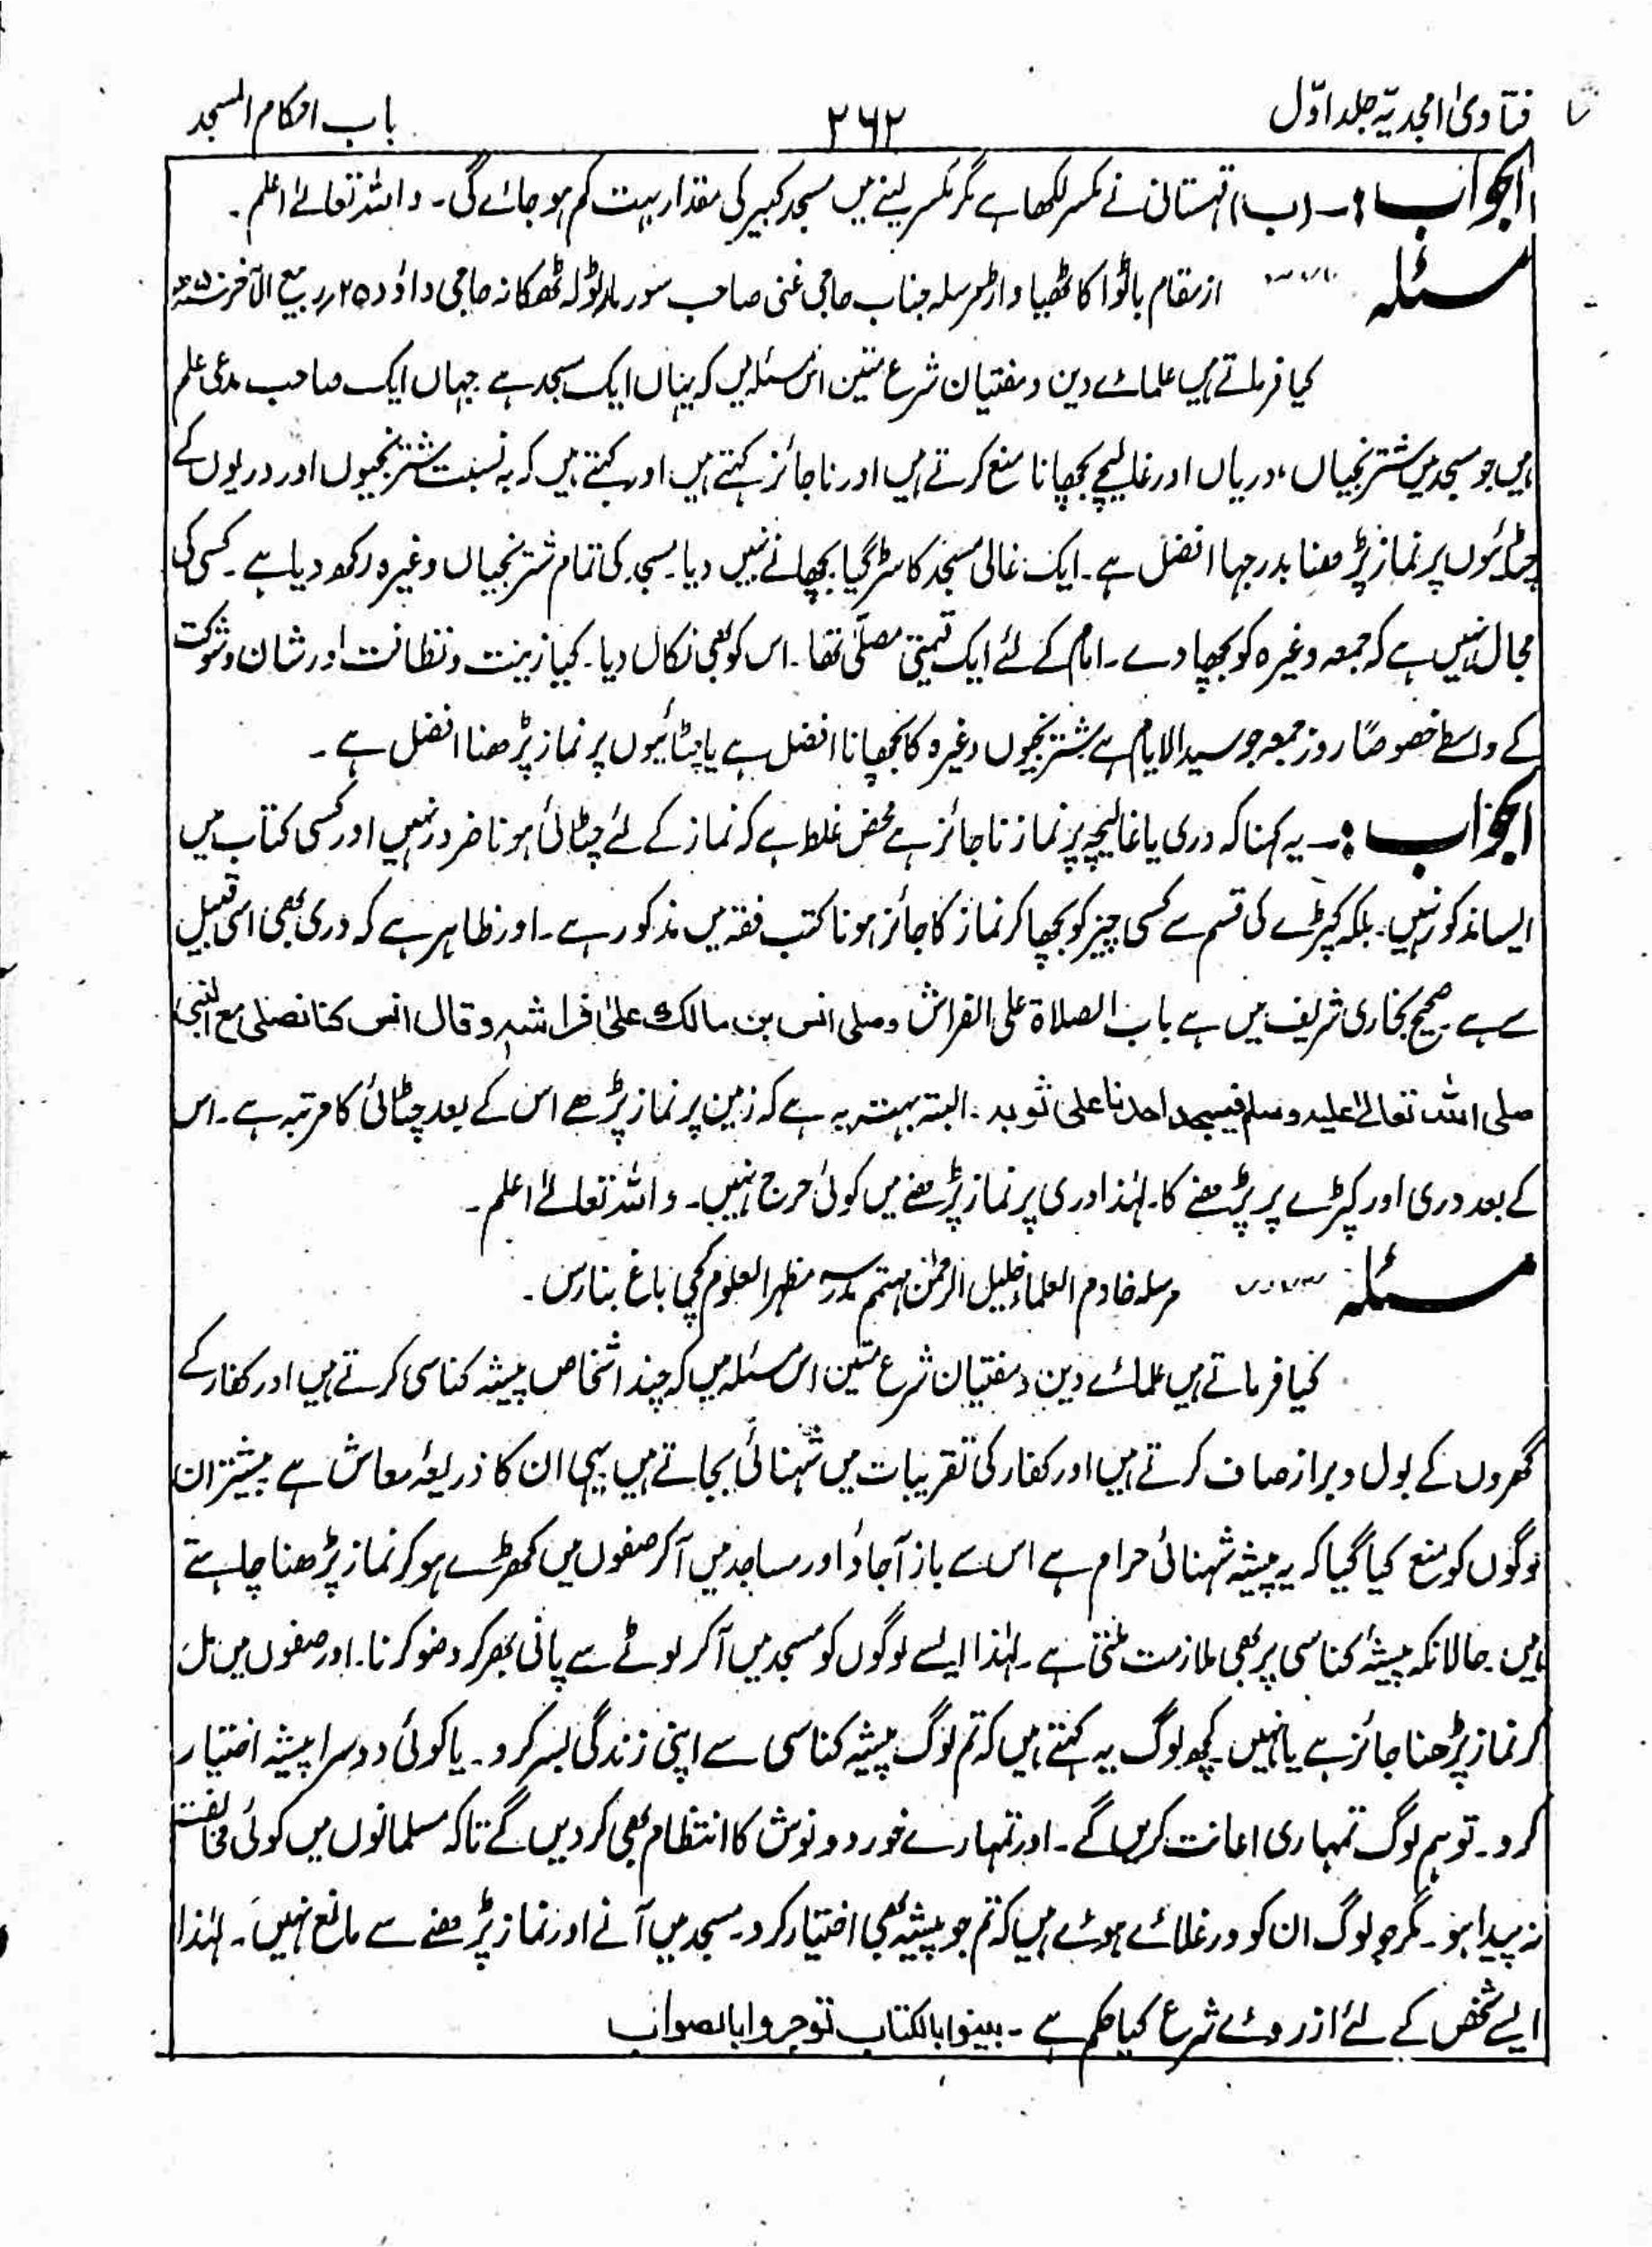 فتاویٰ امجدیہ جلد اوّل
۲۶۲
باب احکام المسجد
الجواب :۔ (ب) قہستانی نے مکسر لکھا ہے مگر مکسر لینے میں مسجد کبیر کی مقدار بہت کم ہو جائے گی۔ واللہ تعالےٰ اعلم۔
مسئلہ از مقام بانٹوا کاٹھیاوار مرسلہ جناب حاجی غنی صاحب ٹھکانہ حاجی داؤد ۲۵؍ ربیع الآخر
کیا فرماتے ہیں علمائے دین و مفتیان شرع متین اس مسئلہ میں کہ یہاں ایک مسجد ہے جہاں ایک صاحب مدعی علم
ہیں جو مسجد میں شترنجیاں، دریاں اور غالیچے بچھانا منع کرتے ہیں اور ناجائز کہتے ہیں اور کہتے ہیں کہ بہ نسبت شترنجیوں اور دریوں کے
چٹائیوں پر نماز پڑھنا بدرجہا افضل ہے۔ ایک غالی مسجد کا سڑ گیا بچھانے نہیں دیا۔ مسجد کی تمام شترنجیاں وغیرہ رکھ دیا ہے۔ کسی کی
مجال نہیں ہے کہ جمعہ وغیرہ کو بچھا دے۔ امام کے لئے ایک قیمتی مصلّٰی تھا۔ اس کو بھی نکال دیا۔ کیا زینت و نظافت اور شان و شوکت
کے واسطے خصوصًا روز جمعہ جو سید الایام ہے شترنجیوں وغیرہ کا بچھانا افضل ہے یا چٹائیوں پر نماز پڑھنا افضل ہے ۔
الجواب :۔ یہ کہنا کہ دری یا غالیچہ پر نماز ناجائز ہے محض غلط ہے کہ نماز کے لئے چٹائی ہونا ضرور نہیں اور کسی کتاب میں
ایسا مذکور نہیں۔ بلکہ کپڑے کی قسم سے کسی چیز کو بچھا کر نماز کا جائز ہونا کتب فقہ میں مذکور ہے۔ اور ظاہر ہے کہ دری بھی اسی قبیل
سے ہے صحیح بخاری شریف میں ہے باب الصلاة علی الفراش وصلی انس بن مالک علیٰ فراشہ وقال انس کنا نصلی مع النبی
صلی اللہ تعالےٰ علیہ وسلم فیسجد احدنا علی ثوبہ۔ البتہ بہتر یہ ہے کہ زمین پر نماز پڑھے اس کے بعد چٹائی کا مرتبہ ہے۔ اس
کے بعد دری اور کپڑے پر پڑھنے کا۔ لہٰذا دری پر نماز پڑھنے میں کوئی حرج نہیں۔ واللہ تعالےٰ اعلم۔
مسئلہ مرسلہ خادم العلماء خلیل الرحمٰن مہتمم مدرسہ مظہر العلوم کچی باغ بنارس۔
کیا فرماتے ہیں علمائے دین و مفتیان شرع متین اس مسئلہ میں کہ چند اشخاص پیشہ کناسی کرتے ہیں اور کفار کے
گھروں کے بول و براز صاف کرتے ہیں اور کفار کی تقریبات میں شہنائی بجاتے ہیں یہی ان کا ذریعۂ معاش ہے پیشتر ان
لوگوں کو منع کیا گیا کہ یہ پیشہ شہنائی حرام ہے اس سے باز آجاؤ اور مساجد میں آکر صفوں میں کھڑے ہو کر نماز پڑھنا چاہتے
ہیں۔ حالانکہ پیشۂ کناسی پر بھی ملازمت ملتی ہے۔ لہٰذا ایسے لوگوں کو مسجد میں آکر لوٹے سے پانی بھر کر وضو کرنا۔ اور صفوں میں مل
کر نماز پڑھنا جائز ہے یا نہیں۔ کچھ لوگ یہ کہتے ہیں کہ تم لوگ پیشہ کناسی سے اپنی زندگی بسر کرو۔ یا کوئی دوسرا پیشہ اختیار
کرو۔ تو ہم لوگ تمہاری اعانت کریں گے۔ اور تمہارے خورد و نوش کا انتظام بھی کر دیں گے تاکہ مسلمانوں میں کوئی مخالفت
نہ پیدا ہو۔ مگر جو لوگ ان کو ورغلائے ہوئے ہیں کہ تم جو پیشہ بھی اختیار کرو۔ مسجد میں آنے اور نماز پڑھنے سے مانع نہیں۔ لہٰذا
ایسے شخص کے لئے از روئے شرع کیا حکم ہے۔ بینوا بالکتاب توجروا بالصواب